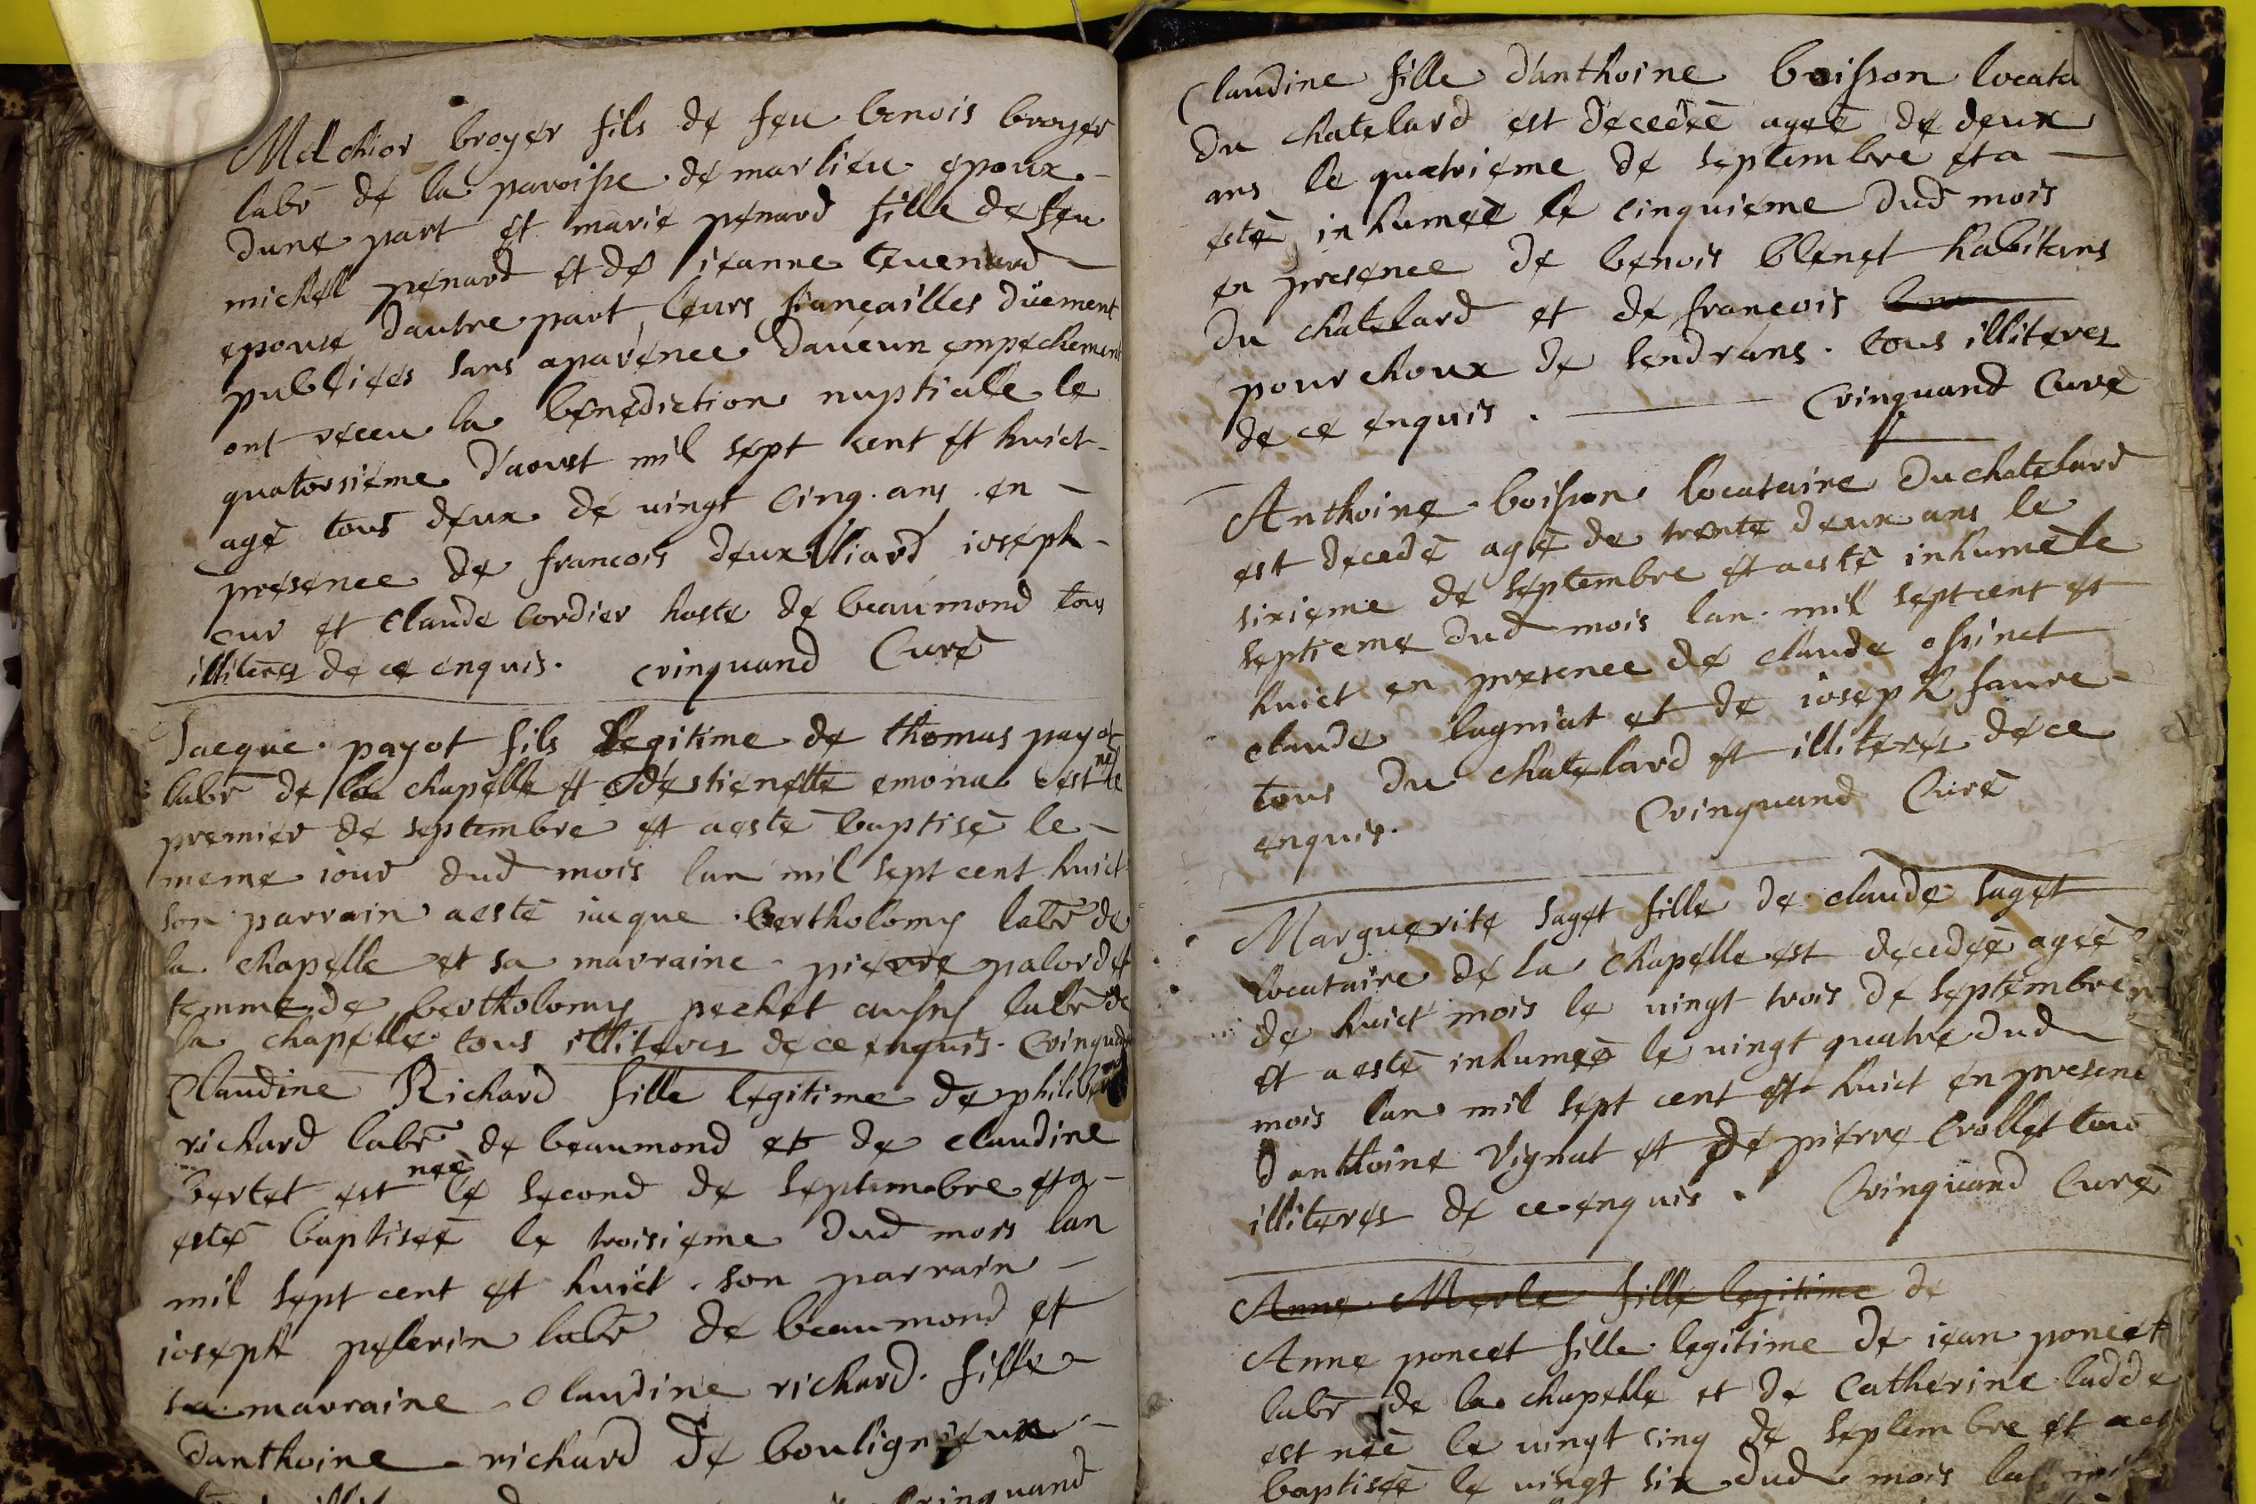 Melchior broyer fils de feu benois broyer
labr de la paroisse de marlieu epoux
dune part et marie penard fille de feu
michel penard et de ieanne teuenard
epouse dautre part, leurs fiançailles düement
publiées sans aparence daucun empechement
ont receu la benediction nuptialle le
quatorsieme d'aoust mil sept cent et huict
agé tous deux de vingt cinq ans en
presence de francois deuxlliard ioseph
cur et Claude Cordier hoste de beaumond tous
illiteres de ce enquis. Crinquand Curé
Jacque payot fils legitime de thomas payot
labr de la chapelle et destienette emona est né le
premier de septembre et aesté baptisé le
meme iour dud mois lan mil sept cent huict
son parrain aesté iacque bertholomy labr de
la chapelle et sa marraine pierre palordet
femme de bertholomy pechet aussy labr de
la chapelle tous illiteres de ce enquis. Crinquand
Claudine Richard fille legitime de philibert
richard labr de beaumond et de claudine
bertet est née le second de septembre et a
esté baptisée le troisieme dud mois lan
mil sept cent et huict. son parrain
ioseph pelerin labr de beaumond et
sa marraine Claudine richard fille
danthoine richard de bouligneux
Crinquand
Claudine fille d'anthoine boisson locata
du chatelard est decedée agée de deux
ans le quatrieme de septembre et a
esté inhumée le cinquieme dud mois
en presence de benois blenet habitans
du chatelard et de francois
pourchoux de sendrans. tous illiteres
de ce enquis. Crinquand Curé
Anthoine boisson locataire du chatelard
est decedé agé de trente deux ans le
sixieme de septembre et aesté inhumé le
septieme dud mois lan mil sept cent et
huict en presence de claude ossinet
claude lagniat et de ioseph faure
tous du chatelard et illiteres de ce
enquis. Crinquand Curé
Marguerite saget fille de claude saget
locataire de la chapelle est decedée agée
de huict mois le vingt trois de septembre
et aesté inhumée le vingt quatre dud
mois lan mil sept cent et huict en presenc
d'anthoine Vignat et de pierre Crollet tous
illiteres de ce enquis. Crinquand Curé
Anne Merle fille legitime de
Anne poncet fille legitime de iean poncet
labr de la chapelle et de Catherine ladde
est née le vingt cinq de septembre et aest
baptisée le vingt six dud mois lan mil